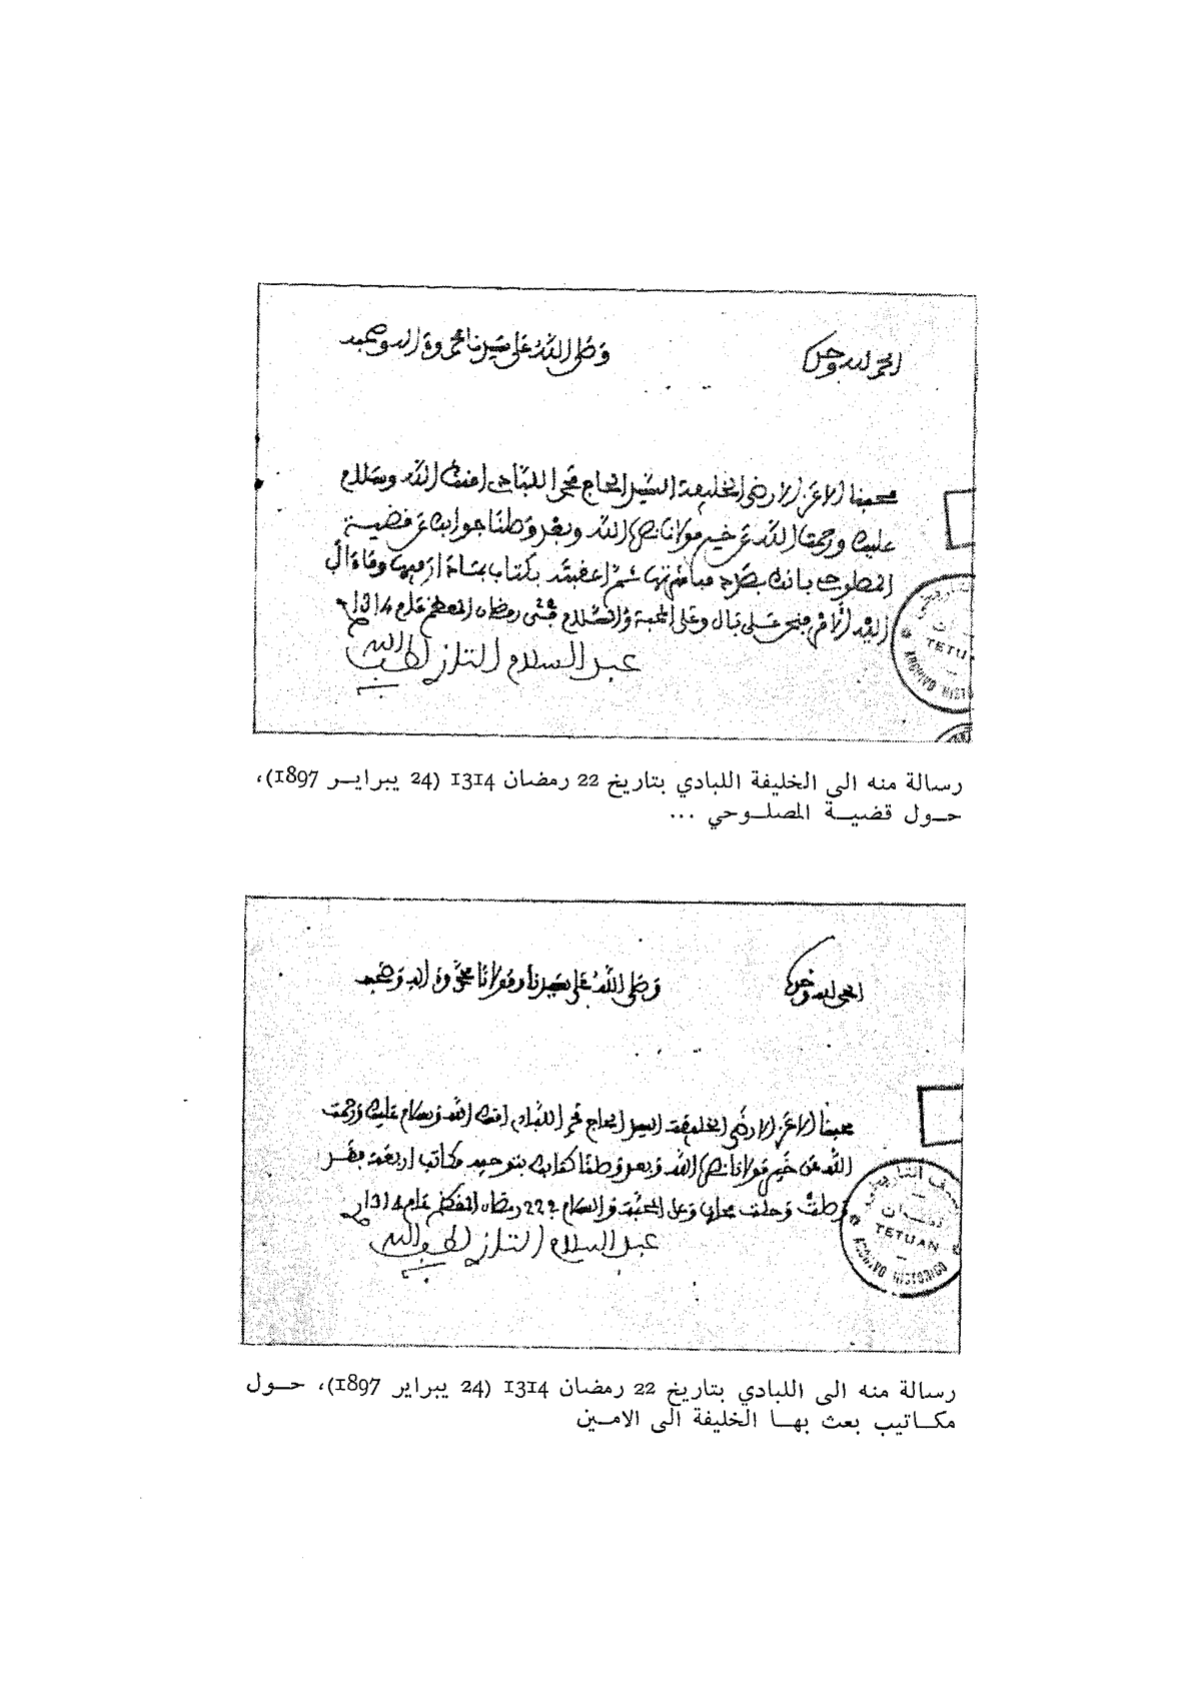 الحمد لله وحده
وصلى الله على سيدنا محمد وءاله وصحبه
محبنا الاعز الارضى الخليفة السيد الحاج محمد اللبادي امنك الله وسلام
عليك ورحمت الله عن خير مولانا نصره الله وبعد وصلنا جوابك عن قضية
المصلوحي بانك بصدد ثم اعقبته بكتاب
على بال وعلى المحبة والسلام في 22 رمضان المعظم عام 1314
عبد السلام التازي لطف الله به
TETU
ARCHIVO HIST
رسالة منه الى الخليفة اللبادي بتاريخ 22 رمضان 1314 (24 يبرايــر 1897)،
حــول قضيــة المصلــوحي ...
الحمد لله وحده
وصلى الله على سيدنا ومولانا محمد وءاله وصحبه
محبنا الاعز الارضى الخليفة السيد الحاج محمد اللبادي امنك الله وسلام عليك ورحمت
الله عن خير مولانا نصره الله وبعد وصلنا كتابك بتوجيه مكاتب اربعة فقد
وصلت وحلت محلها وعلى المحبة والسلام في 22 رمضان المعظم عام 1314
عبد السلام التازي لطف الله به
تطـــوان
TETUAN
ARCHIVO HISTORICO
رسالة منه الى اللبادي بتاريخ 22 رمضان 1314 (24 يبراير 1897)، حــول
مكــاتيب بعث بهــا الخليفة الى الامــين